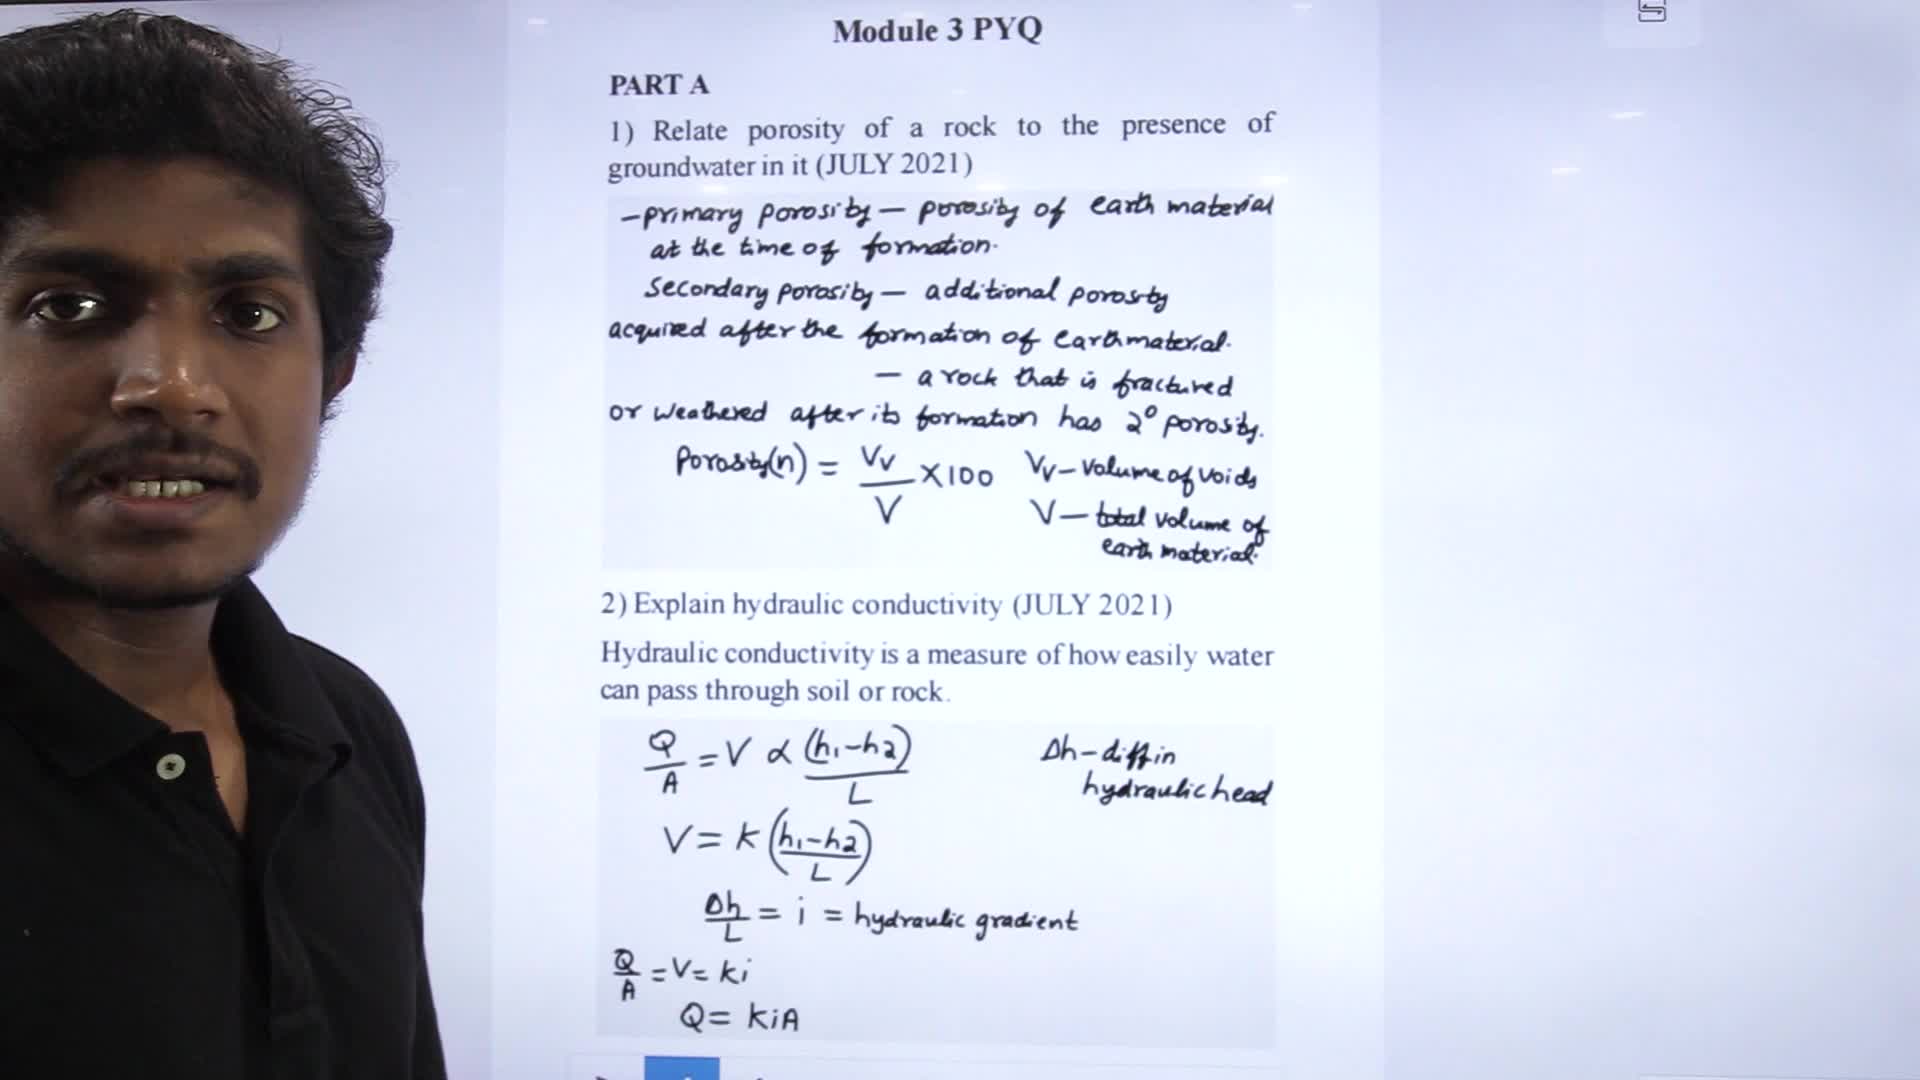 Module 3 PYQ
PART A
1) Relate porosity of a rock to the presence of
groundwater in it (JULY 2021)
- primary porosity - porosity of earth material
at the time of formation.
Secondary porosity - additional porosity
acquired after the formation of earth material.
- a rock that is fractured
or weathered after its formation has 2° porosity.
Porosity(n) = Vv/V × 100 Vv - volume of voids
V - total volume of
earth material.
2) Explain hydraulic conductivity (JULY 2021)
Hydraulic conductivity is a measure of how easily water
can pass through soil or rock.
Q/A = V ∝ (h1-h2)/L Δh - diff in
hydraulic head
V = K (h1-h2/L)
Δh/L = i = hydraulic gradient
Q/A = V = Ki
Q = KiA